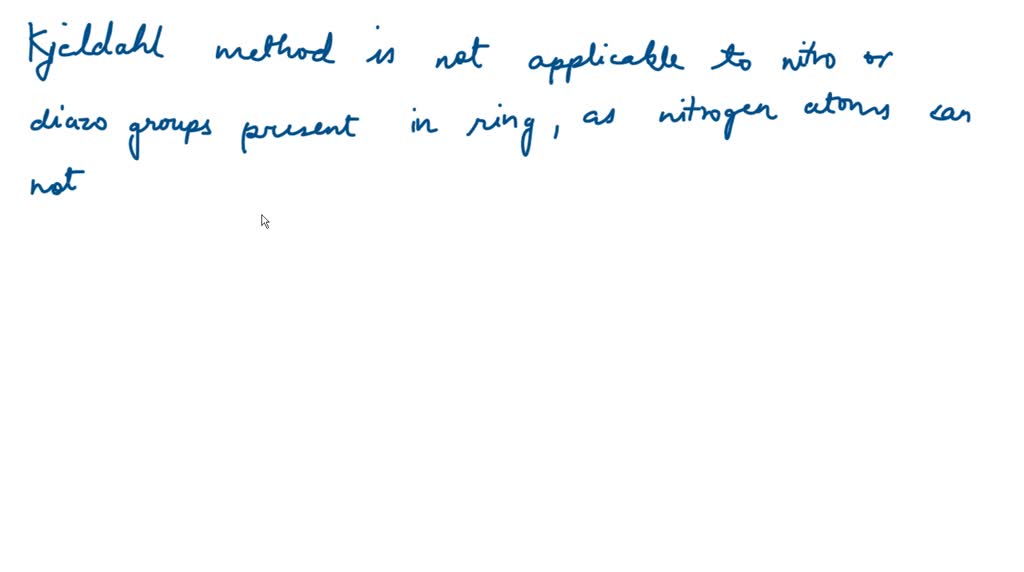 Kjeldahl method is not applicable to nitro or
diazo groups present in ring, as nitrogen atoms can
not